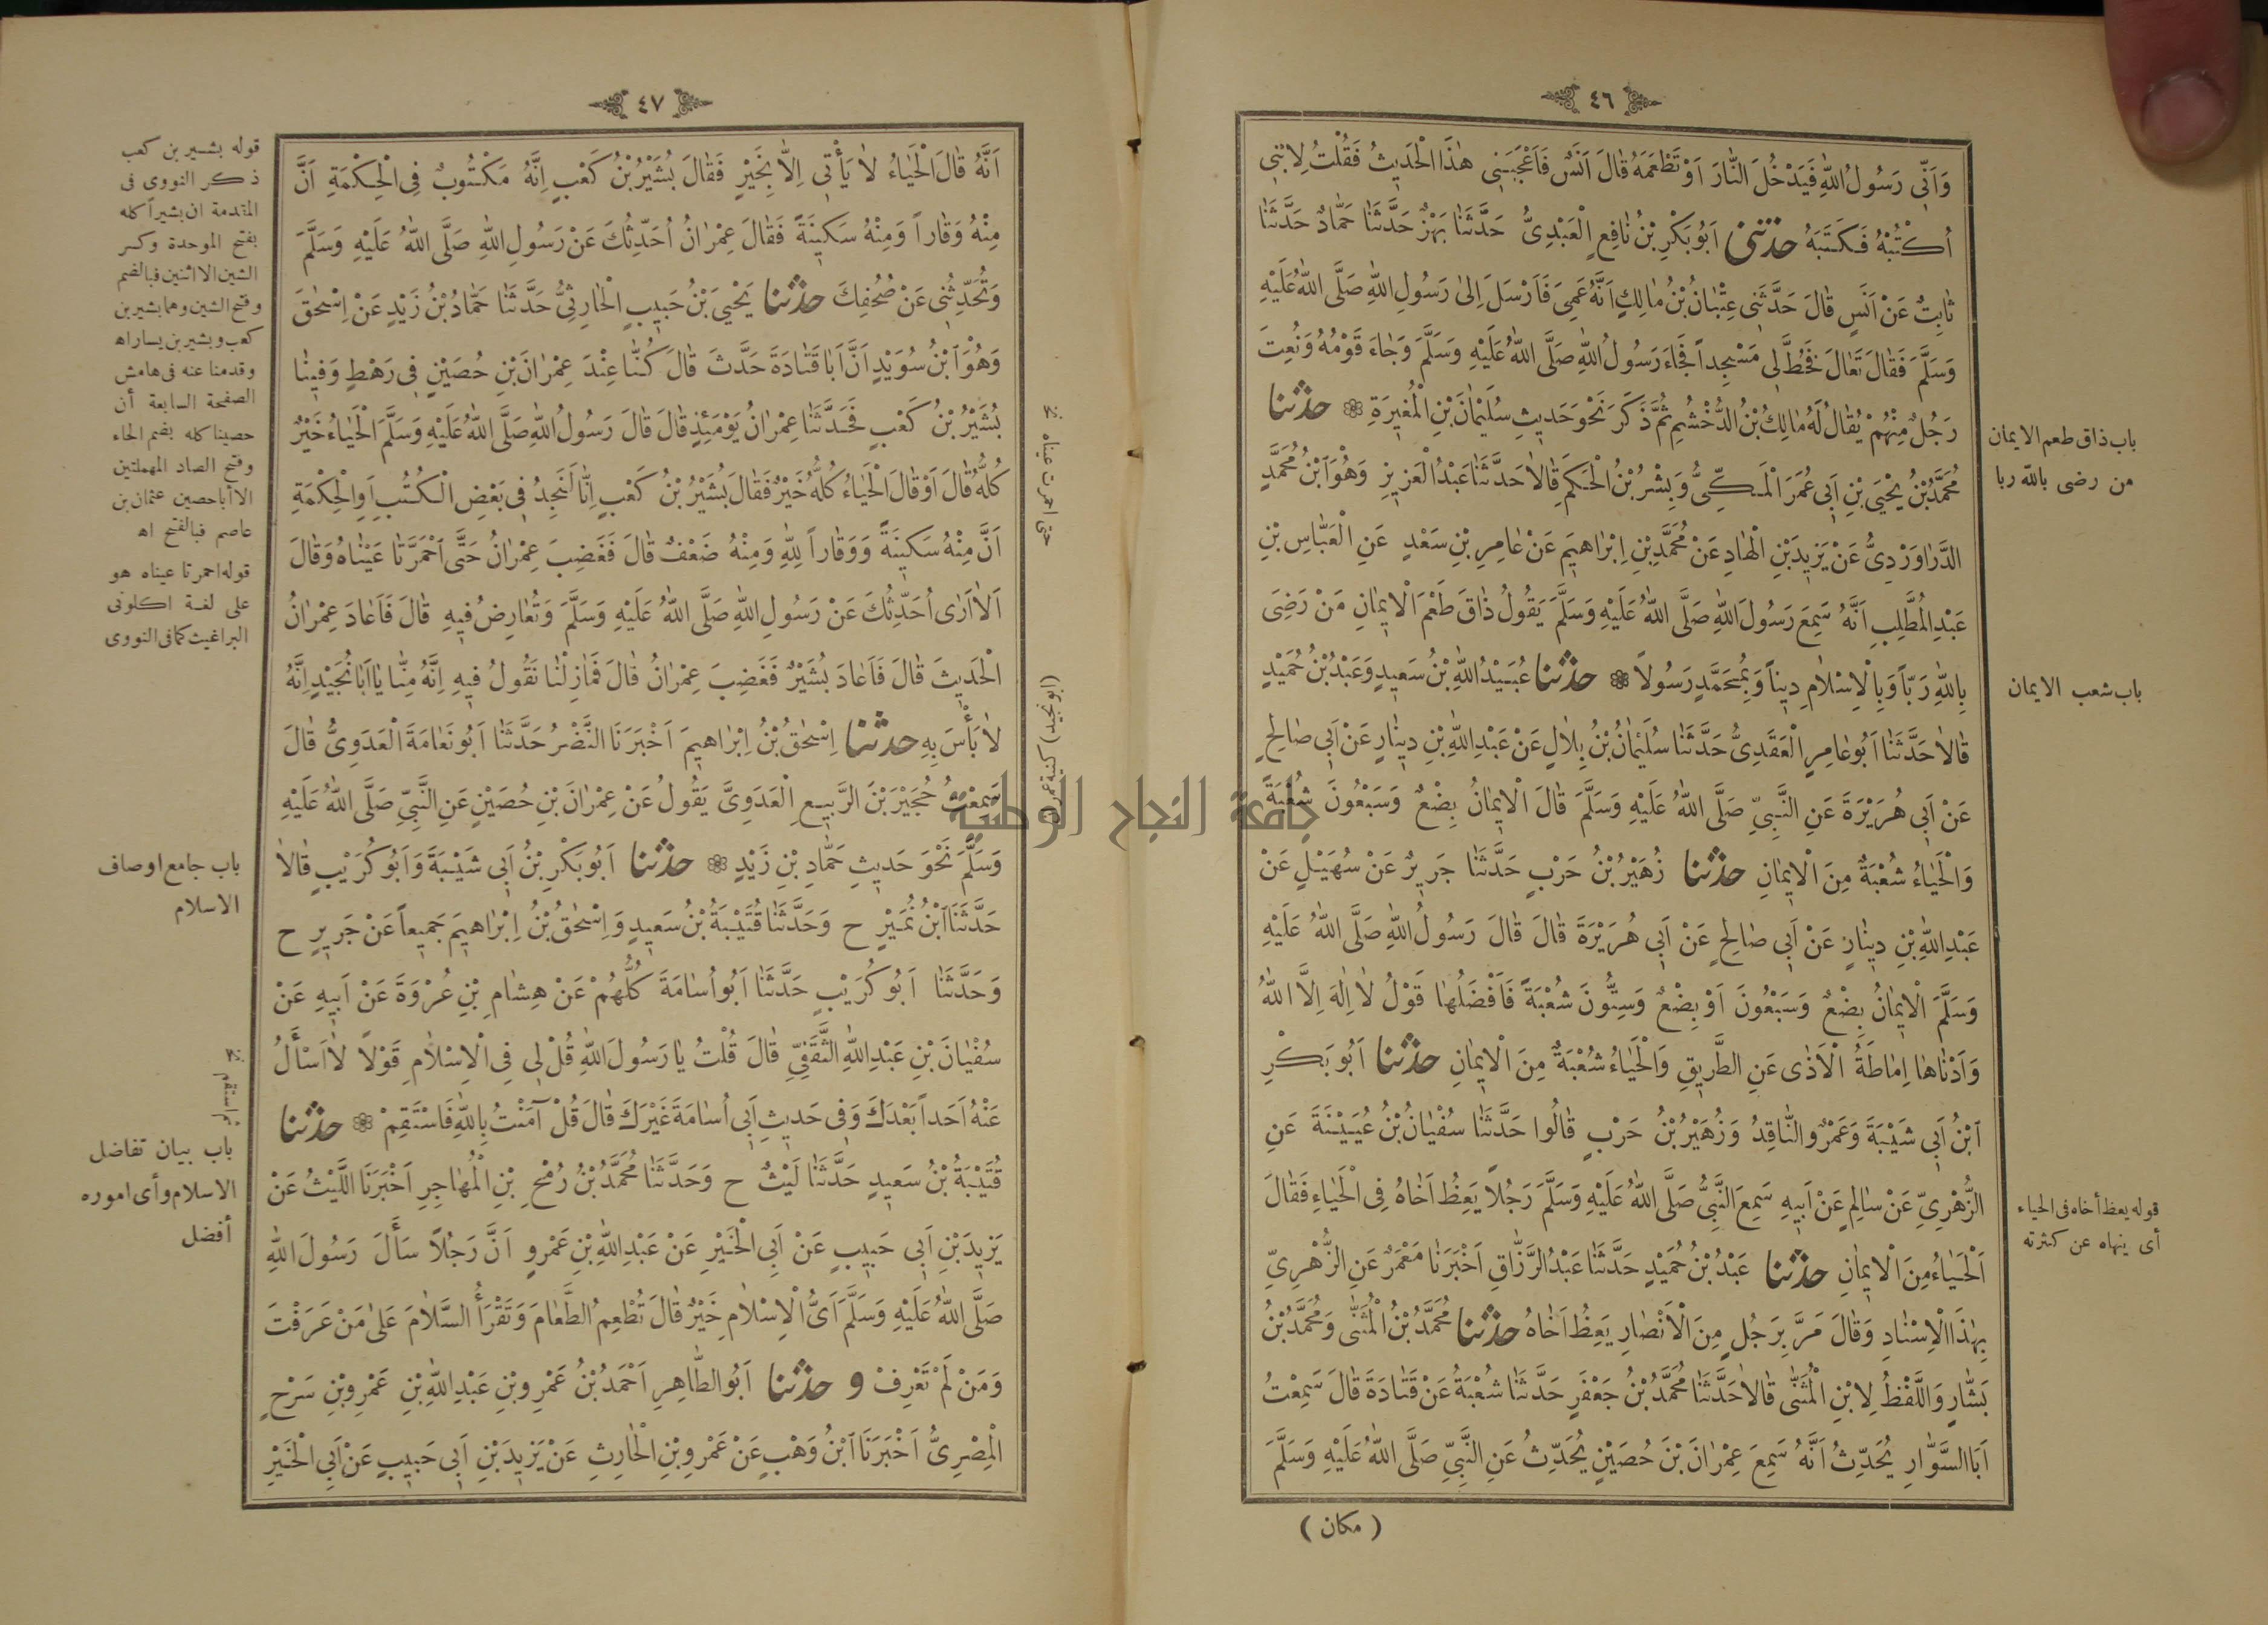 ٤٦
وَاَنّى رَسُولُ اللهِ فَيَدْخُلَ النَّارَ اَوْ تَطْعَمَهُ قَالَ اَنَسٌ فَاَعْجَبَنِى هٰذَا الْحَدِيثُ فَقُلْتُ لِابْنِى
اُكْتُبْهُ فَكَتَبَهُ حدثنى اَبُوبَكْرِ بْنُ نَافِعٍ الْعَبْدِىُّ حَدَّثَنَا بَهْزٌ حَدَّثَنَا حَمَّادٌ حَدَّثَنَا
ثَابِتٌ عَنْ اَنَسٍ قَالَ حَدَّثَنِى عِتْبَانُ بْنُ مَالِكٍ اَنَّهُ عَمِىَ فَاَرْسَلَ اِلىٰ رَسُولِ اللهِ صَلَّى اللهُ عَلَيْهِ
وَسَلَّمَ فَقَالَ تَعَالَ فَخُطَّ لِى مَسْجِداً فَجَاءَ رَسُولُ اللهِ صَلَّى اللهُ عَلَيْهِ وَسَلَّمَ وَجَاءَ قَوْمُهُ وَنُعِتَ
رَجُلٌ مِنْهُمْ يُقَالُ لَهُ مَالِكُ بْنُ الدُّخْشُمِ ثُمَّ ذَكَرَ نَحْوَ حَدِيثِ سُلَيْمَانَ بْنِ الْمُغِيرَةِ ❁ حدثنا
مُحَمَّدُ بْنُ يَحْيَى بْنِ اَبِى عُمَرَ الْمَكِّىُّ وَبِشْرُ بْنُ الْحَكَمِ قَالَا حَدَّثَنَا عَبْدُ الْعَزِيزِ وَهُوَ ابْنُ مُحَمَّدٍ
الدَّرَاوَرْدِىُّ عَنْ يَزِيدَ بْنِ الْهَادِ عَنْ مُحَمَّدِ بْنِ اِبْرَاهِيمَ عَنْ عَامِرِ بْنِ سَعْدٍ عَنِ الْعَبَّاسِ بْنِ
عَبْدِ الْمُطَّلِبِ اَنَّهُ سَمِعَ رَسُولَ اللهِ صَلَّى اللهُ عَلَيْهِ وَسَلَّمَ يَقُولُ ذَاقَ طَعْمَ الْاِيمَانِ مَنْ رَضِىَ
بِاللهِ رَبّاً وَبِالْاِسْلَامِ دِيناً وَبِمُحَمَّدٍ رَسُولاً ❁ حدثنا عُبَيْدُ اللهِ بْنُ سَعِيدٍ وَعَبْدُ بْنُ حُمَيْدٍ
قَالَا حَدَّثَنَا اَبُو عَامِرٍ الْعَقَدِىُّ حَدَّثَنَا سُلَيْمَانُ بْنُ بِلَالٍ عَنْ عَبْدِ اللهِ بْنِ دِينَارٍ عَنْ اَبِى صَالِحٍ
عَنْ اَبِى هُرَيْرَةَ عَنِ النَّبِىِّ صَلَّى اللهُ عَلَيْهِ وَسَلَّمَ قَالَ الْاِيمَانُ بِضْعٌ وَسَبْعُونَ شُعْبَةً
وَالْحَيَاءُ شُعْبَةٌ مِنَ الْاِيمَانِ حدثنا زُهَيْرُ بْنُ حَرْبٍ حَدَّثَنَا جَرِيرٌ عَنْ سُهَيْلٍ عَنْ
عَبْدِ اللهِ بْنِ دِينَارٍ عَنْ اَبِى صَالِحٍ عَنْ اَبِى هُرَيْرَةَ قَالَ قَالَ رَسُولُ اللهِ صَلَّى اللهُ عَلَيْهِ
وَسَلَّمَ الْاِيمَانُ بِضْعٌ وَسَبْعُونَ اَوْ بِضْعٌ وَسِتُّونَ شُعْبَةً فَاَفْضَلُهَا قَوْلُ لَا اِلٰهَ اِلَّا اللهُ
وَاَدْنَاهَا اِمَاطَةُ الْاَذٰى عَنِ الطَّرِيقِ وَالْحَيَاءُ شُعْبَةٌ مِنَ الْاِيمَانِ حدثنا اَبُو بَكْرِ
ابْنُ اَبِى شَيْبَةَ وَعَمْرٌو النَّاقِدُ وَزُهَيْرُ بْنُ حَرْبٍ قَالُوا حَدَّثَنَا سُفْيَانُ بْنُ عُيَيْنَةَ عَنِ
الزُّهْرِىِّ عَنْ سَالِمٍ عَنْ اَبِيهِ سَمِعَ النَّبِىُّ صَلَّى اللهُ عَلَيْهِ وَسَلَّمَ رَجُلاً يَعِظُ اَخَاهُ فِى الْحَيَاءِ فَقَالَ
اَلْحَيَاءُ مِنَ الْاِيمَانِ حدثنا عَبْدُ بْنُ حُمَيْدٍ حَدَّثَنَا عَبْدُ الرَّزَّاقِ اَخْبَرَنَا مَعْمَرٌ عَنِ الزُّهْرِىِّ
بِهٰذَا الْاِسْنَادِ وَقَالَ مَرَّ بِرَجُلٍ مِنَ الْاَنْصَارِ يَعِظُ اَخَاهُ حدثنا مُحَمَّدُ بْنُ الْمُثَنّٰى وَمُحَمَّدُ بْنُ
بَشَّارٍ وَاللَّفْظُ لِابْنِ الْمُثَنّٰى قَالَا حَدَّثَنَا مُحَمَّدُ بْنُ جَعْفَرٍ حَدَّثَنَا شُعْبَةُ عَنْ قَتَادَةَ قَالَ سَمِعْتُ
اَبَا السَّوَّارِ يُحَدِّثُ اَنَّهُ سَمِعَ عِمْرَانَ بْنَ حُصَيْنٍ يُحَدِّثُ عَنِ النَّبِىِّ صَلَّى اللهُ عَلَيْهِ وَسَلَّمَ
( مكان )
باب ذاق طعم الايمان
من رضى بالله ربا
باب شعب الايمان
قوله يعظ أخاه فى الحياء
أى ينهاه عن كثرته
جامعة النجاح الوطنية
٤٧
اَنَّهُ قَالَ الْحَيَاءُ لَا يَأْتِى اِلَّا بِخَيْرٍ فَقَالَ بُشَيْرُ بْنُ كَعْبٍ اِنَّهُ مَكْتُوبٌ فِى الْحِكْمَةِ اَنَّ
مِنْهُ وَقَاراً وَمِنْهُ سَكِينَةً فَقَالَ عِمْرَانُ اُحَدِّثُكَ عَنْ رَسُولِ اللهِ صَلَّى اللهُ عَلَيْهِ وَسَلَّمَ
وَتُحَدِّثُنِى عَنْ صُحُفِكَ حدثنا يَحْيَى بْنُ حَبِيبٍ الْحَارِثِىُّ حَدَّثَنَا حَمَّادُ بْنُ زَيْدٍ عَنْ اِسْحٰقَ
وَهُوَ ابْنُ سُوَيْدٍ اَنَّ اَبَا قَتَادَةَ حَدَّثَ قَالَ كُنَّا عِنْدَ عِمْرَانَ بْنِ حُصَيْنٍ فِى رَهْطٍ وَفِينَا
بُشَيْرُ بْنُ كَعْبٍ فَحَدَّثَنَا عِمْرَانُ يَوْمَئِذٍ قَالَ قَالَ رَسُولُ اللهِ صَلَّى اللهُ عَلَيْهِ وَسَلَّمَ الْحَيَاءُ خَيْرٌ
كُلُّهُ قَالَ اَوْ قَالَ الْحَيَاءُ كُلُّهُ خَيْرٌ فَقَالَ بُشَيْرُ بْنُ كَعْبٍ اِنَّا لَنَجِدُ فِى بَعْضِ الْكُتُبِ اَوِ الْحِكْمَةِ
اَنَّ مِنْهُ سَكِينَةً وَوَقَاراً لِلهِ وَمِنْهُ ضَعْفٌ قَالَ فَغَضِبَ عِمْرَانُ حَتّٰى احْمَرَّتَا عَيْنَاهُ وَقَالَ
اَلَا اَرٰى اُحَدِّثُكَ عَنْ رَسُولِ اللهِ صَلَّى اللهُ عَلَيْهِ وَسَلَّمَ وَتُعَارِضُ فِيهِ قَالَ فَاَعَادَ عِمْرَانُ
الْحَدِيثَ قَالَ فَاَعَادَ بُشَيْرٌ فَغَضِبَ عِمْرَانُ قَالَ فَمَا زِلْنَا نَقُولُ فِيهِ اِنَّهُ مِنَّا يَا اَبَا نُجَيْدٍ اِنَّهُ
لَا بَأْسَ بِهِ حدثنا اِسْحٰقُ بْنُ اِبْرَاهِيمَ اَخْبَرَنَا النَّضْرُ حَدَّثَنَا اَبُو نَعَامَةَ الْعَدَوِىُّ قَالَ
سَمِعْتُ حُجَيْرَ بْنَ الرَّبِيعِ الْعَدَوِىَّ يَقُولُ عَنْ عِمْرَانَ بْنِ حُصَيْنٍ عَنِ النَّبِىِّ صَلَّى اللهُ عَلَيْهِ
وَسَلَّمَ نَحْوَ حَدِيثِ حَمَّادِ بْنِ زَيْدٍ ❁ حدثنا اَبُو بَكْرِ بْنُ اَبِى شَيْبَةَ وَاَبُو كُرَيْبٍ قَالَا
حَدَّثَنَا ابْنُ نُمَيْرٍ ح وَحَدَّثَنَا قُتَيْبَةُ بْنُ سَعِيدٍ وَاِسْحٰقُ بْنُ اِبْرَاهِيمَ جَمِيعاً عَنْ جَرِيرٍ ح
وَحَدَّثَنَا اَبُو كُرَيْبٍ حَدَّثَنَا اَبُو اُسَامَةَ كُلُّهُمْ عَنْ هِشَامِ بْنِ عُرْوَةَ عَنْ اَبِيهِ عَنْ
سُفْيَانَ بْنِ عَبْدِ اللهِ الثَّقَفِىِّ قَالَ قُلْتُ يَا رَسُولَ اللهِ قُلْ لِى فِى الْاِسْلَامِ قَوْلاً لَا اَسْأَلُ
عَنْهُ اَحَداً بَعْدَكَ وَفِى حَدِيثِ اَبِى اُسَامَةَ غَيْرَكَ قَالَ قُلْ آمَنْتُ بِاللهِ فَاسْتَقِمْ ❁ حدثنا
قُتَيْبَةُ بْنُ سَعِيدٍ حَدَّثَنَا لَيْثٌ ح وَحَدَّثَنَا مُحَمَّدُ بْنُ رُمْحِ بْنِ الْمُهَاجِرِ اَخْبَرَنَا اللَّيْثُ عَنْ
يَزِيدَ بْنِ اَبِى حَبِيبٍ عَنْ اَبِى الْخَيْرِ عَنْ عَبْدِ اللهِ بْنِ عَمْرٍو اَنَّ رَجُلاً سَأَلَ رَسُولَ اللهِ
صَلَّى اللهُ عَلَيْهِ وَسَلَّمَ اَىُّ الْاِسْلَامِ خَيْرٌ قَالَ تُطْعِمُ الطَّعَامَ وَتَقْرَأُ السَّلَامَ عَلىٰ مَنْ عَرَفْتَ
وَمَنْ لَمْ تَعْرِفْ و حدثنا اَبُو الطَّاهِرِ اَحْمَدُ بْنُ عَمْرِو بْنِ عَبْدِ اللهِ بْنِ عَمْرِو بْنِ سَرْحٍ
الْمِصْرِىُّ اَخْبَرَنَا ابْنُ وَهْبٍ عَنْ عَمْرِو بْنِ الْحَارِثِ عَنْ يَزِيدَ بْنِ اَبِى حَبِيبٍ عَنْ اَبِى الْخَيْرِ
حتى احمرت عيناه نخ
(ابو نجيد) كنية عمران
قوله بشير بن كعب
ذكر النووى فى
المقدمة ان بشيراً كله
بفتح الموحدة وكسر
الشين الا اثنين فبالضم
وفتح الشين وهما بشير بن
كعب وبشير بن يسار اه
وقدمنا عنه فى هامش
الصفحة السابعة أن
حصينا كله بضم الحاء
وفتح الصاد المهملتين
الا أباحصين عثمان بن
عاصم فبالفتح اه
قوله احمرتا عيناه هو
على لغة اكلونى
البراغيث كما فى النووى
باب جامع اوصاف
الاسلام
ثم استقم نخ
باب بيان تفاضل
الاسلام وأى اموره
أفضل